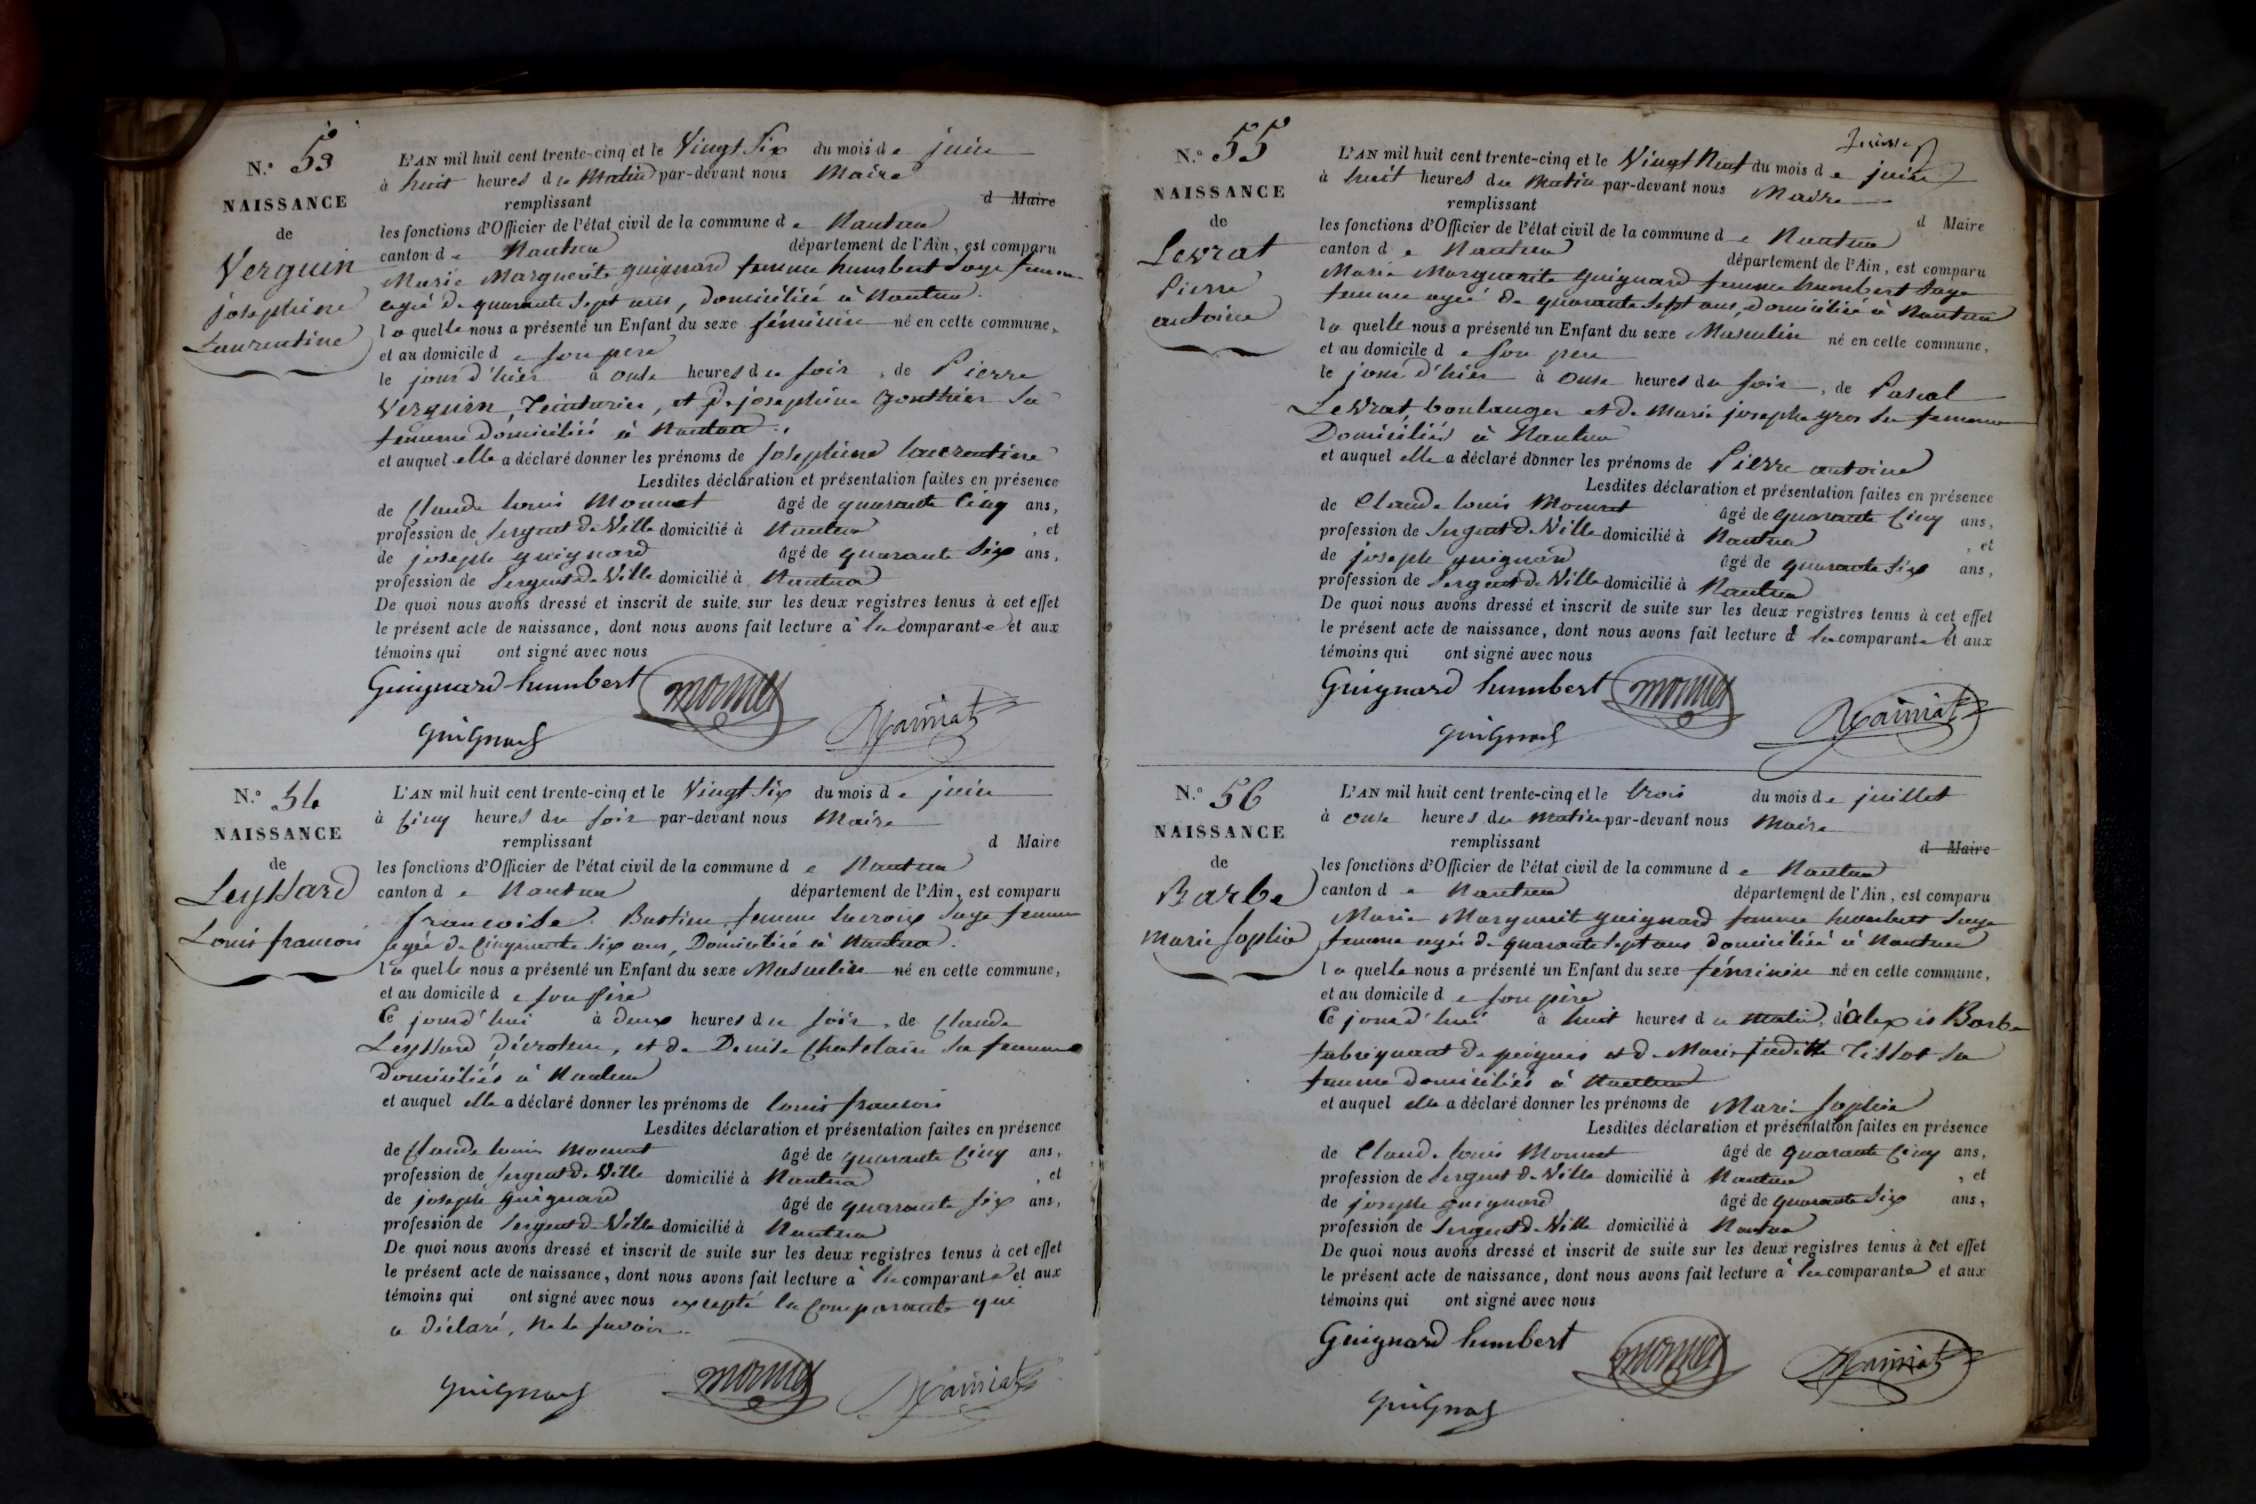 N.o 53
NAISSANCE
de
Verguin
josephine
Laurentine
L'AN mil huit cent trente-cinq et le Vingt Six du mois de juin
à huit heures du Matin par-devant nous Maire
remplissant d Maire
les fonctions d'Officier de l'état civil de la commune de Nantua
canton de Nantua département de l'Ain, est comparu
Marie Marguerite guignard femme humbert Sage femme
agée de quarante Sept ans, domiciliée à Nantua.
laquelle nous a présenté un Enfant du sexe féminin né en cette commune,
et au domicile de son pere
le jour d'hier à onse heures du soir, de Pierre
Verguin, Teinturier, et de josephine Gonthier Sa
femme domiciliés à Nantua.
et auquel elle a déclaré donner les prénoms de Josephine laurentine
Lesdites déclaration et présentation faites en présence
de Claude louis Monnet âgé de quarante Cinq ans,
profession de Sergent de Ville domicilié à Nantua, et
de joseph guignard âgé de quarante Six ans,
profession de Sergent de Ville domicilié à Nantua
De quoi nous avons dressé et inscrit de suite sur les deux registres tenus à cet effet
le présent acte de naissance, dont nous avons fait lecture à la comparante et aux
témoins qui ont signé avec nous
Guignard humbert monnet
guignard
N.o 54
NAISSANCE
de
Leyssard
Louis francois
L'AN mil huit cent trente-cinq et le Vingt Six du mois de juin
à Cinq heures du soir par-devant nous Maire
remplissant d Maire
les fonctions d'Officier de l'état civil de la commune de Nantua
canton de Nantua département de l'Ain, est comparu
francoise Bastien femme lacroix Sage femme
agée de Cinquante Six ans, Domiciliée à Nantua.
laquelle nous a présenté un Enfant du sexe Masculin né en cette commune,
et au domicile de son père
Ce jourd'hui à deux heures du soir, de Claude
Leyssard, décroteur, et de Denise Chatelain Sa femme
Domiciliés à Nantua
et auquel elle a déclaré donner les prénoms de louis francois
Lesdites déclaration et présentation faites en présence
de Claude louis Monnet âgé de quarante Cinq ans,
profession de Sergent de Ville domicilié à Nantua, et
de joseph guignard âgé de quarante Six ans,
profession de Sergent de Ville domicilié à Nantua
De quoi nous avons dressé et inscrit de suite sur les deux registres tenus à cet effet
le présent acte de naissance, dont nous avons fait lecture à la comparante et aux
témoins qui ont signé avec nous excepté la Comparante qui
a déclaré, Ne le savoir.
guignard monnet
N.o 55
NAISSANCE
de
Levrat
Pierre
antoine
L'AN mil huit cent trente-cinq et le Vingt Neuf du mois de juin
à huit heures du Matin par-devant nous Maire
remplissant d Maire
les fonctions d'Officier de l'état civil de la commune de Nantua
canton de Nantua département de l'Ain, est comparu
Marie Marguerite guignard femme humbert Sage
femme agée de quarante Sept ans, Domiciliée à Nantua
laquelle nous a présenté un Enfant du sexe Masculin né en cette commune,
et au domicile de son pere
le jour d'hier à onse heures du soir, de Pascal
Levrat, boulanger et de Marie josephe gros Sa femme
Domiciliés à Nantua
et auquel elle a déclaré donner les prénoms de Pierre antoine
Lesdites déclaration et présentation faites en présence
de Claude louis Monnet âgé de quarante Cinq ans,
profession de Sergent de Ville domicilié à Nantua, et
de joseph guignard âgé de quarante Six ans,
profession de Sergent de Ville domicilié à Nantua
De quoi nous avons dressé et inscrit de suite sur les deux registres tenus à cet effet
le présent acte de naissance, dont nous avons fait lecture à la comparante et aux
témoins qui ont signé avec nous
Guignard humbert monnet
guignard
N.o 56
NAISSANCE
de
Barbe
Marie Sophie
L'AN mil huit cent trente-cinq et le trois du mois de juillet
à onse heures du Matin par-devant nous Maire
remplissant d Maire
les fonctions d'Officier de l'état civil de la commune de Nantua
canton de Nantua département de l'Ain, est comparu
Marie Marguerit guignard femme humbert Sage
femme agée de quarante Sept ans domiciliée à Nantua
laquelle nous a présenté un Enfant du sexe féminin né en cette commune,
et au domicile de son père
Ce jourd'hui à huit heures du matin, d'alexis Barbe
fabriquant de peignes et de Marie Judith Tissot Sa
femme domiciliés à Nantua
et auquel elle a déclaré donner les prénoms de Marie Sophie
Lesdites déclaration et présentation faites en présence
de Claude louis Monnet âgé de quarante Cinq ans,
profession de Sergent de Ville domicilié à Nantua, et
de joseph guignard âgé de quarante Six ans,
profession de Sergent de Ville domicilié à Nantua
De quoi nous avons dressé et inscrit de suite sur les deux registres tenus à cet effet
le présent acte de naissance, dont nous avons fait lecture à la comparante et aux
témoins qui ont signé avec nous
Guignard humbert monnet
guignard